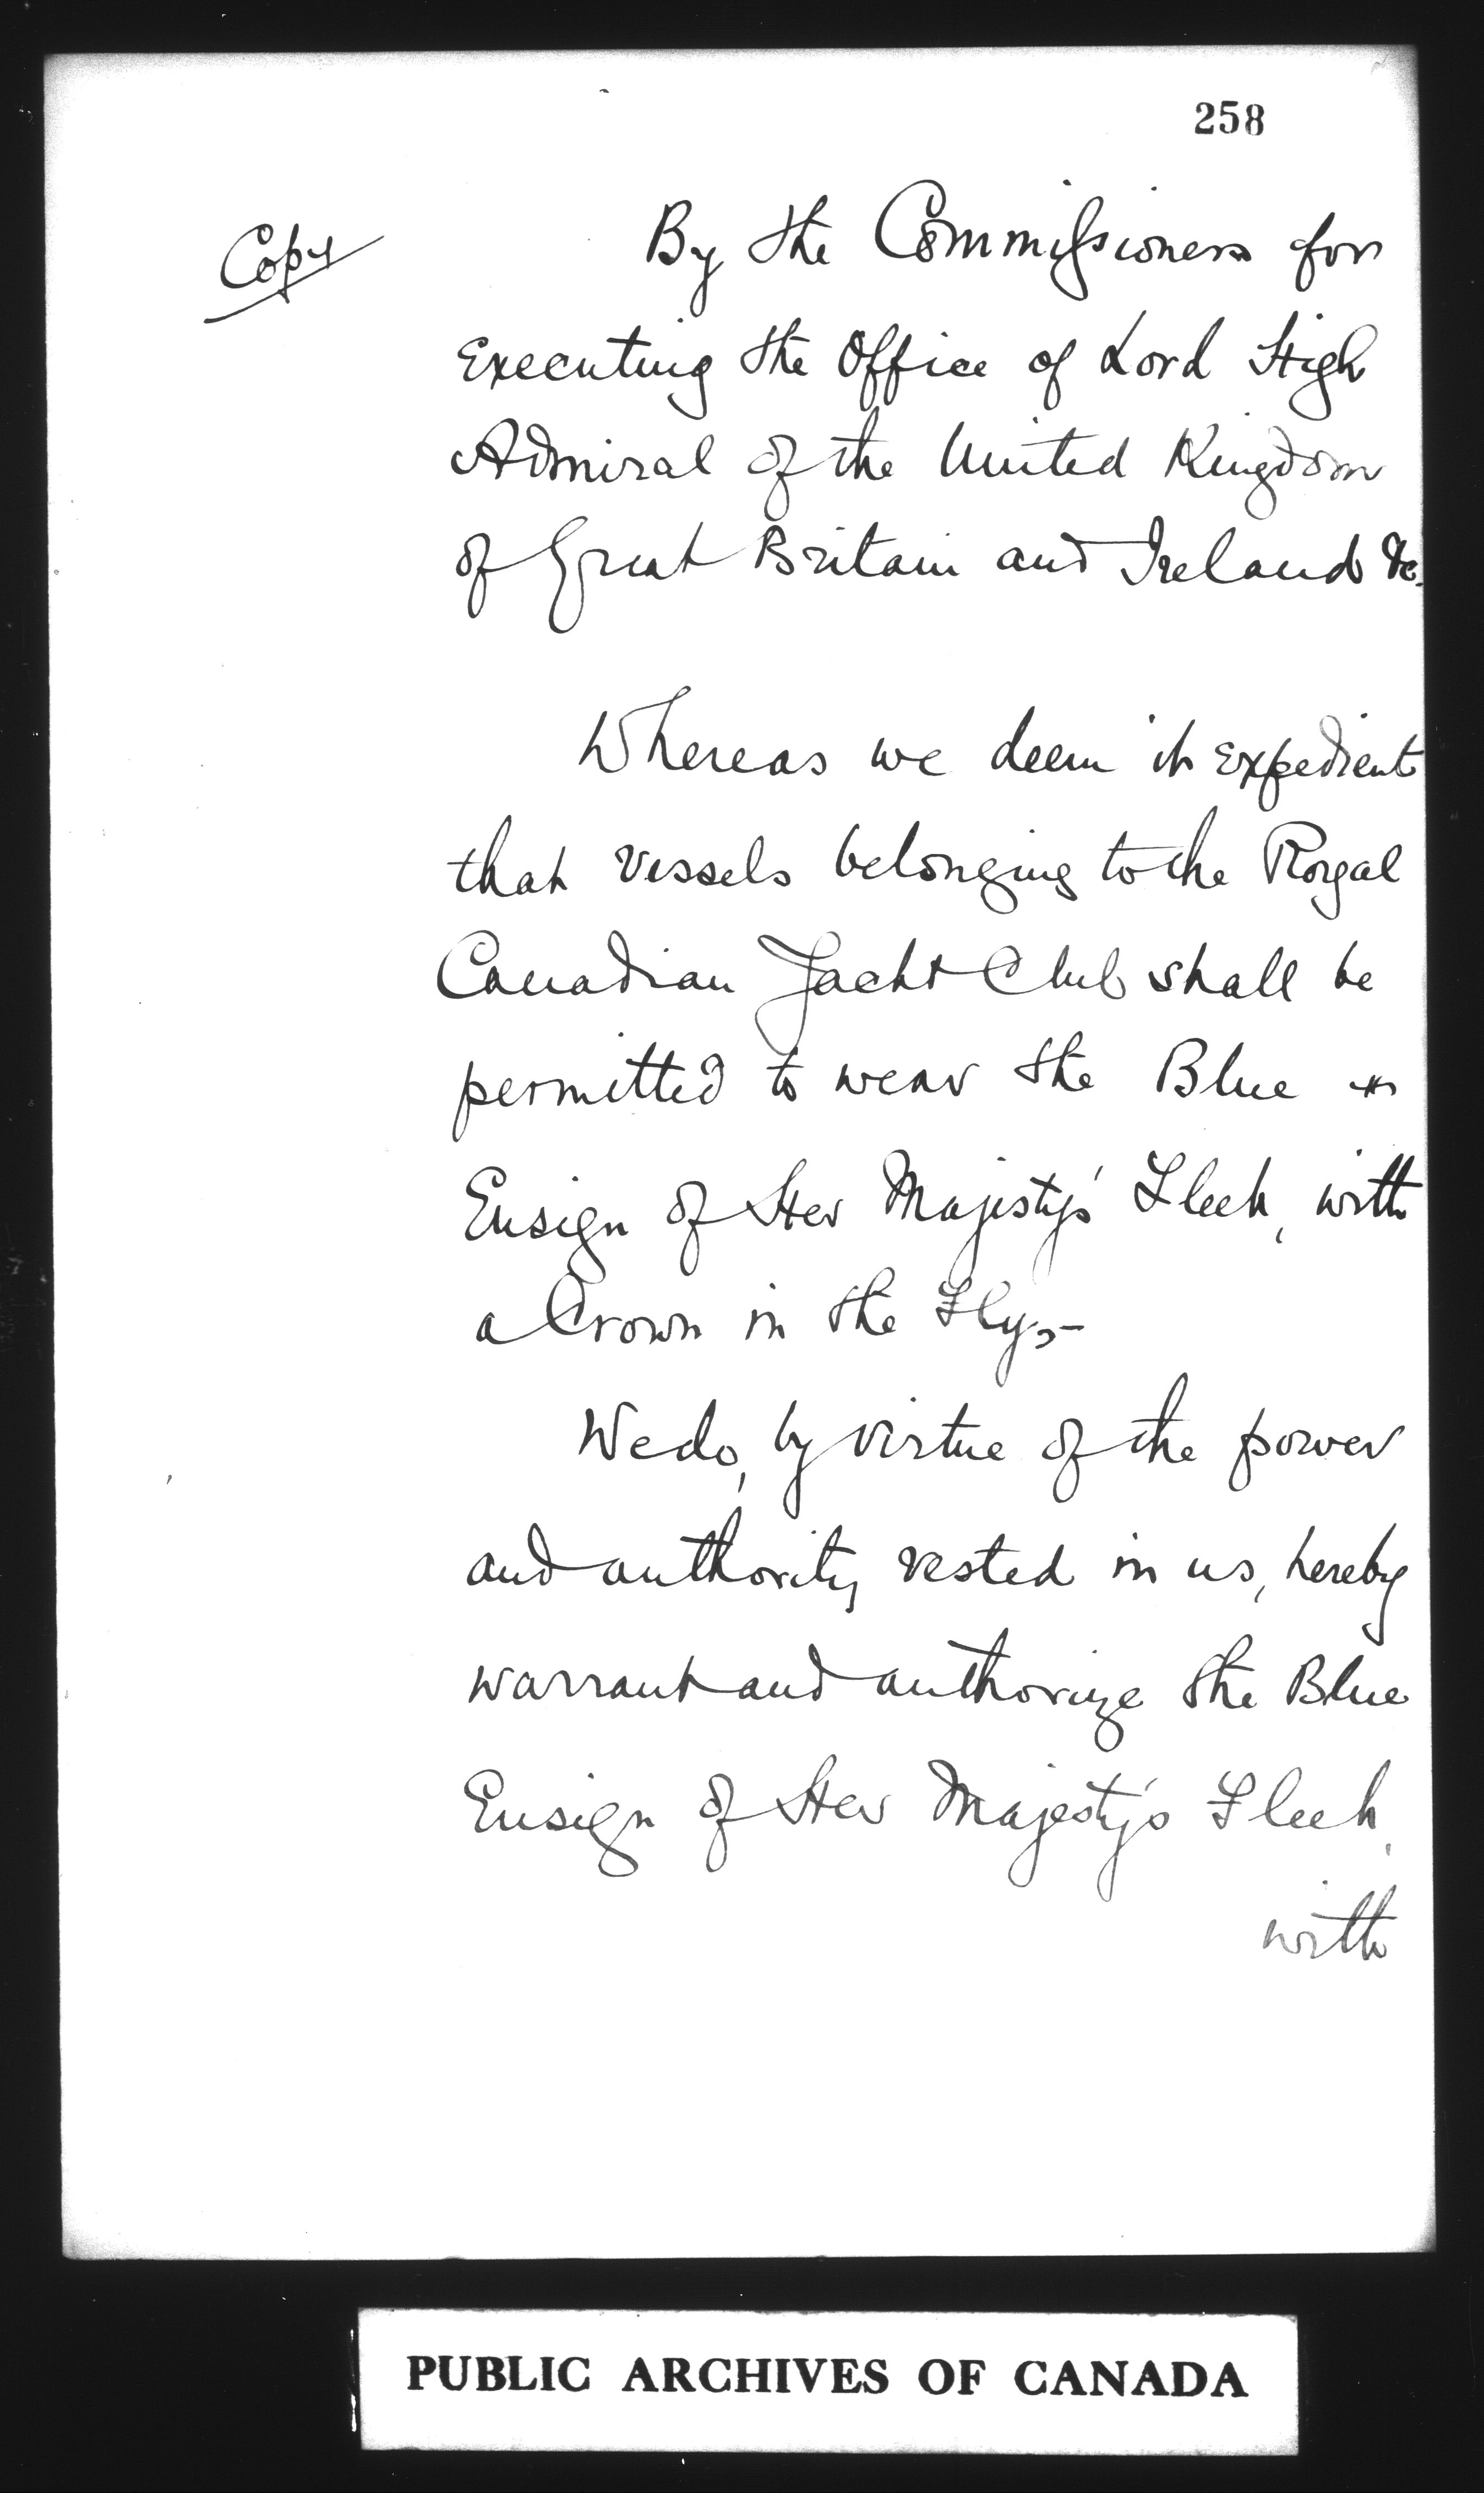 258
Copy
By the Commissioners for
Executing the Office of Lord High
Admiral of the United Kingdom
of Great Britain and Ireland &c.
Whereas we deem it expedient
that vessels belonging to the Royal
Canadian Yacht Club shall be
permitted to wear the Blue
Ensign of Her Majesty's Fleet, with
a Crown in the Fly;-
We do, by virtue of the power
and authority vested in us, hereby
warrant and authorize the Blue
Ensign of Her Majesty's Fleet,
with
PUBLIC ARCHIVES OF CANADA